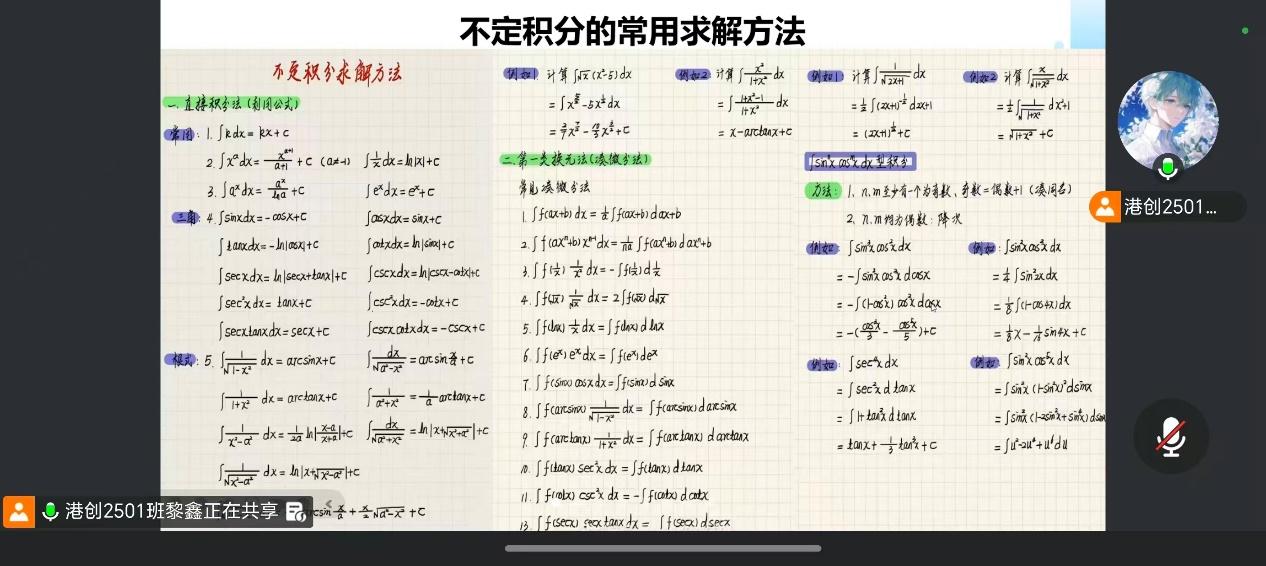 不定积分的常用求解方法
不定积分求解方法
一.直接积分法(利用公式)
常用: 1. ∫kdx = kx + C
2. ∫xᵃdx = xᵃ⁺¹/(a+1) + C (a≠-1) ∫1/x dx = ln|x| + C
3. ∫aˣdx = aˣ/lna + C ∫eˣdx = eˣ + C
三角: 4. ∫sinxdx = -cosx + C ∫cosxdx = sinx + C
∫tanxdx = -ln|cosx| + C ∫cotxdx = ln|sinx| + C
∫secxdx = ln|secx+tanx| + C ∫cscxdx = ln|cscx-cotx| + C
∫sec²xdx = tanx + C ∫csc²xdx = -cotx + C
∫secxtanxdx = secx + C ∫cscxcotxdx = -cscx + C
模式: 5. ∫1/√(1-x²) dx = arcsinx + C ∫dx/√(a²-x²) = arcsin x/a + C
∫1/(1+x²) dx = arctanx + C
∫1/(x²-a²) dx = 1/2a ln|(x-a)/(x+a)| + C ∫dx/√(a²+x²) = ln|x+√(x²+a²)| + C
∫1/√(x²-a²) dx = ln|x+√(x²-a²)| + C
arcsin x/a + x/2 √(a²-x²) + C
例如1 计算∫√x(x²-5)dx
例如2: 计算∫x²/(1+x²) dx
= ∫(1+x²-1)/(1+x²) dx
= x - arctanx + C
二.第一类换元法(凑微分法)
常见凑微分法
1. ∫f(ax+b)dx = 1/a ∫f(ax+b)dax+b
2. ∫f(axⁿ+b)xⁿ⁻¹dx = 1/na ∫f(axⁿ+b)daxⁿ+b
3. ∫f(1/x) 1/x² dx = -∫f(1/x)d1/x
4. ∫f(√x) 1/√x dx = 2∫f(√x)d√x
5. ∫f(lnx) 1/x dx = ∫f(lnx)dlnx
6. ∫f(eˣ)eˣdx = ∫f(eˣ)deˣ
7. ∫f(sinx)cosxdx = ∫f(sinx)dsinx
8. ∫f(arcsinx) 1/√(1-x²) dx = ∫f(arcsinx)darcsinx
9. ∫f(arctanx) 1/(1+x²) dx = ∫f(arctanx)darctanx
10. ∫f(tanx)sec²xdx = ∫f(tanx)dtanx
11. ∫f(cotx)csc²xdx = -∫f(cotx)dcotx
13. ∫f(secx)secxtanxdx = ∫f(secx)dsecx
例如1 计算∫1/√(2x+1) dx
= 1/2 ∫(2x+1)^(-1/2) d2x+1
= (2x+1)^(1/2) + C
例如2 计算∫x/√(1+x²) dx
= 1/2 ∫1/√(1+x²) dx²+1
= √(1+x²) + C
方法: 1. n.m至少有一个为奇数、奇数=偶数+1(凑同名)
2. n.m均为偶数: 降次
例如: ∫sin³xcos²xdx
= -∫sin²xcos²xdcosx
= -∫(1-cos²x)cos²xdcosx
= -(cos³x/3 - cos⁵x/5) + C
例如: ∫sin²xcos²xdx
= 1/4 ∫sin²2xdx
= 1/8 ∫(1-cos4x)dx
例如: ∫sec⁴xdx
= ∫sec²xdtanx
= ∫1+tan²xdtanx
= tanx + 1/3 tan³x + C
例如: ∫sin²xcos⁵xdx
= ∫sin²x(1-sin²x)²dsinx
= ∫sin²x(1-2sin²x+sin⁴x)dsin
= ∫u²-2u⁴+u⁶du
港创2501...
港创2501班黎鑫正在共享